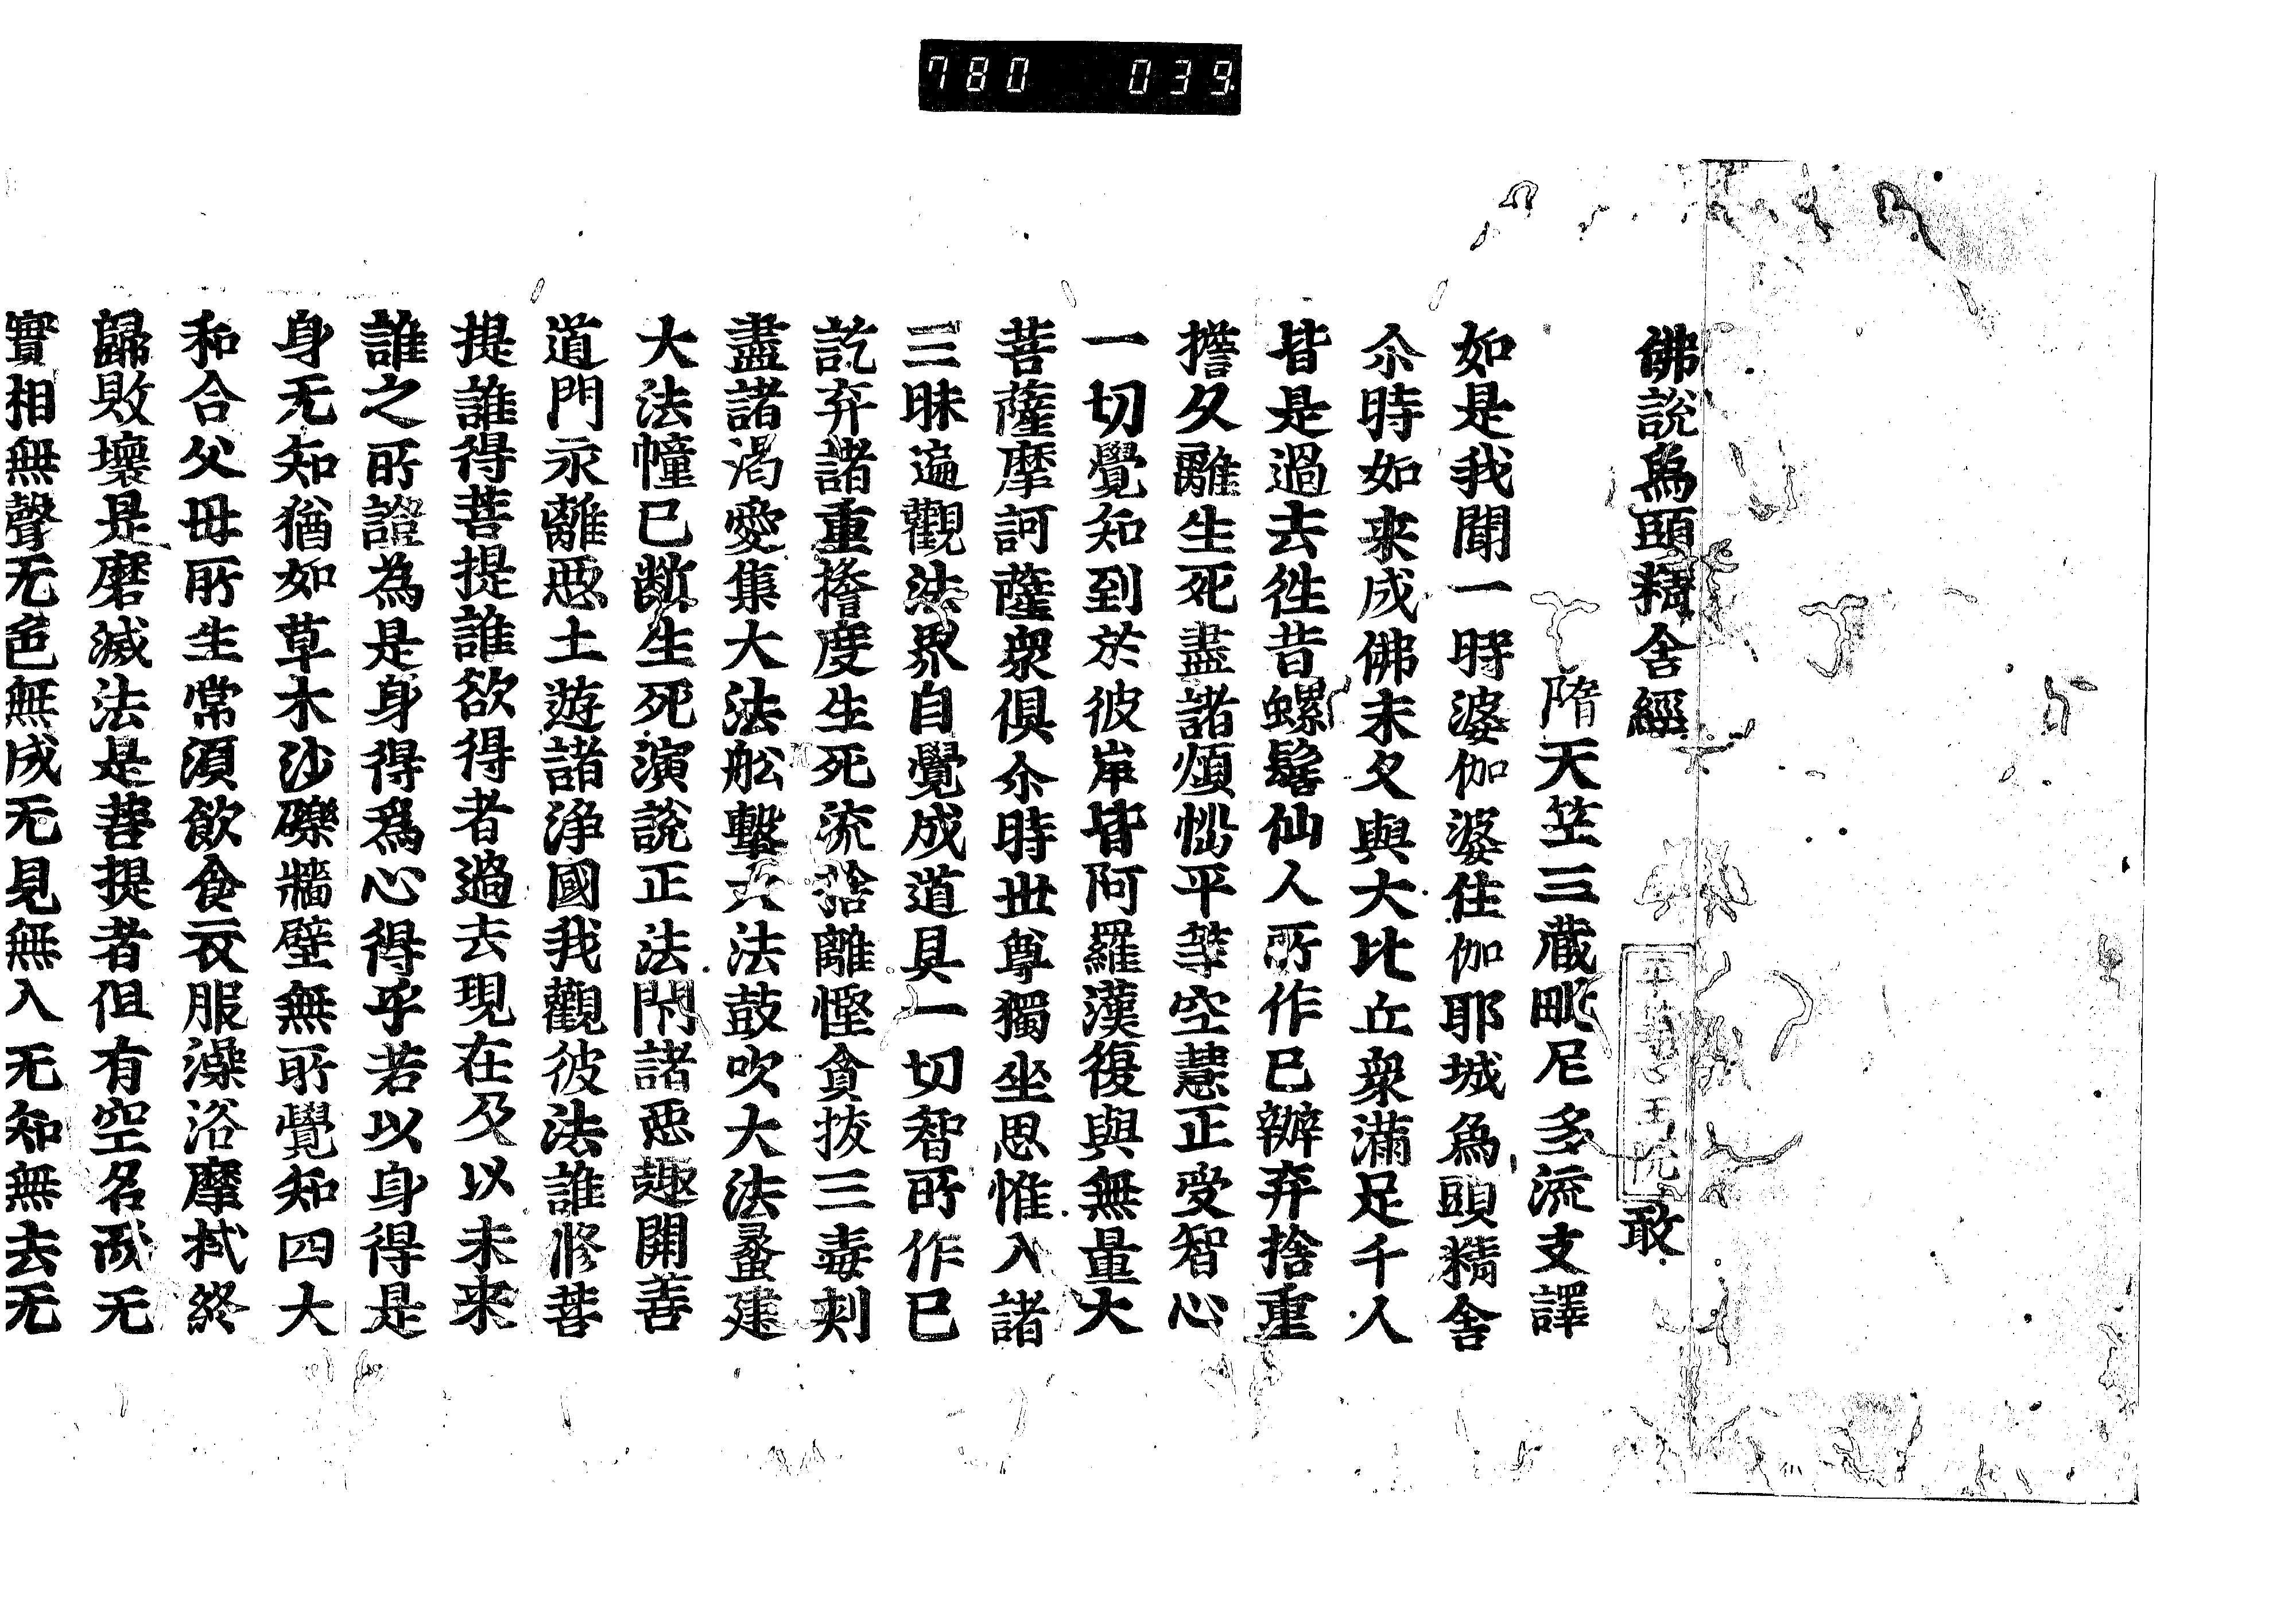 780 039
佛說為頭精舍經 敢
隋天笠三藏毗尼多流支譯
如是我聞一時婆伽婆住伽耶城為頭精舍
尒時如来成佛未久與大比丘衆滿足千人
皆是過去徃昔螺髻仙人所作已辦弃捨重
擔久離生死盡諸煩惱平等空慧正受智心
一切覺知到於彼岸皆阿羅漢復與無量大
菩薩摩訶薩衆俱尒時世尊獨坐思惟入諸
三昧遍觀法界自覺成道具一切智所作已
訖弃諸重擔度生死流捨離慳貪拔三毒刺
盡諸渴愛集大法舩擊大法鼓吹大法䗍建
大法幢已斷生死演說正法閇諸惡趣開善
道門永離惡土遊諸淨國我觀彼法誰修菩
提誰得菩提誰欲得者過去現在及以未来
誰之所證為是身得為心得乎若以身得是
身无知猶如草木沙礫牆壁無所覺知四大
和合父母所生常須飲食衣服澡浴摩拭終
歸敗壞是磨滅法是菩提者但有空名而无
實相無聲无色無成无見無入无知無去无